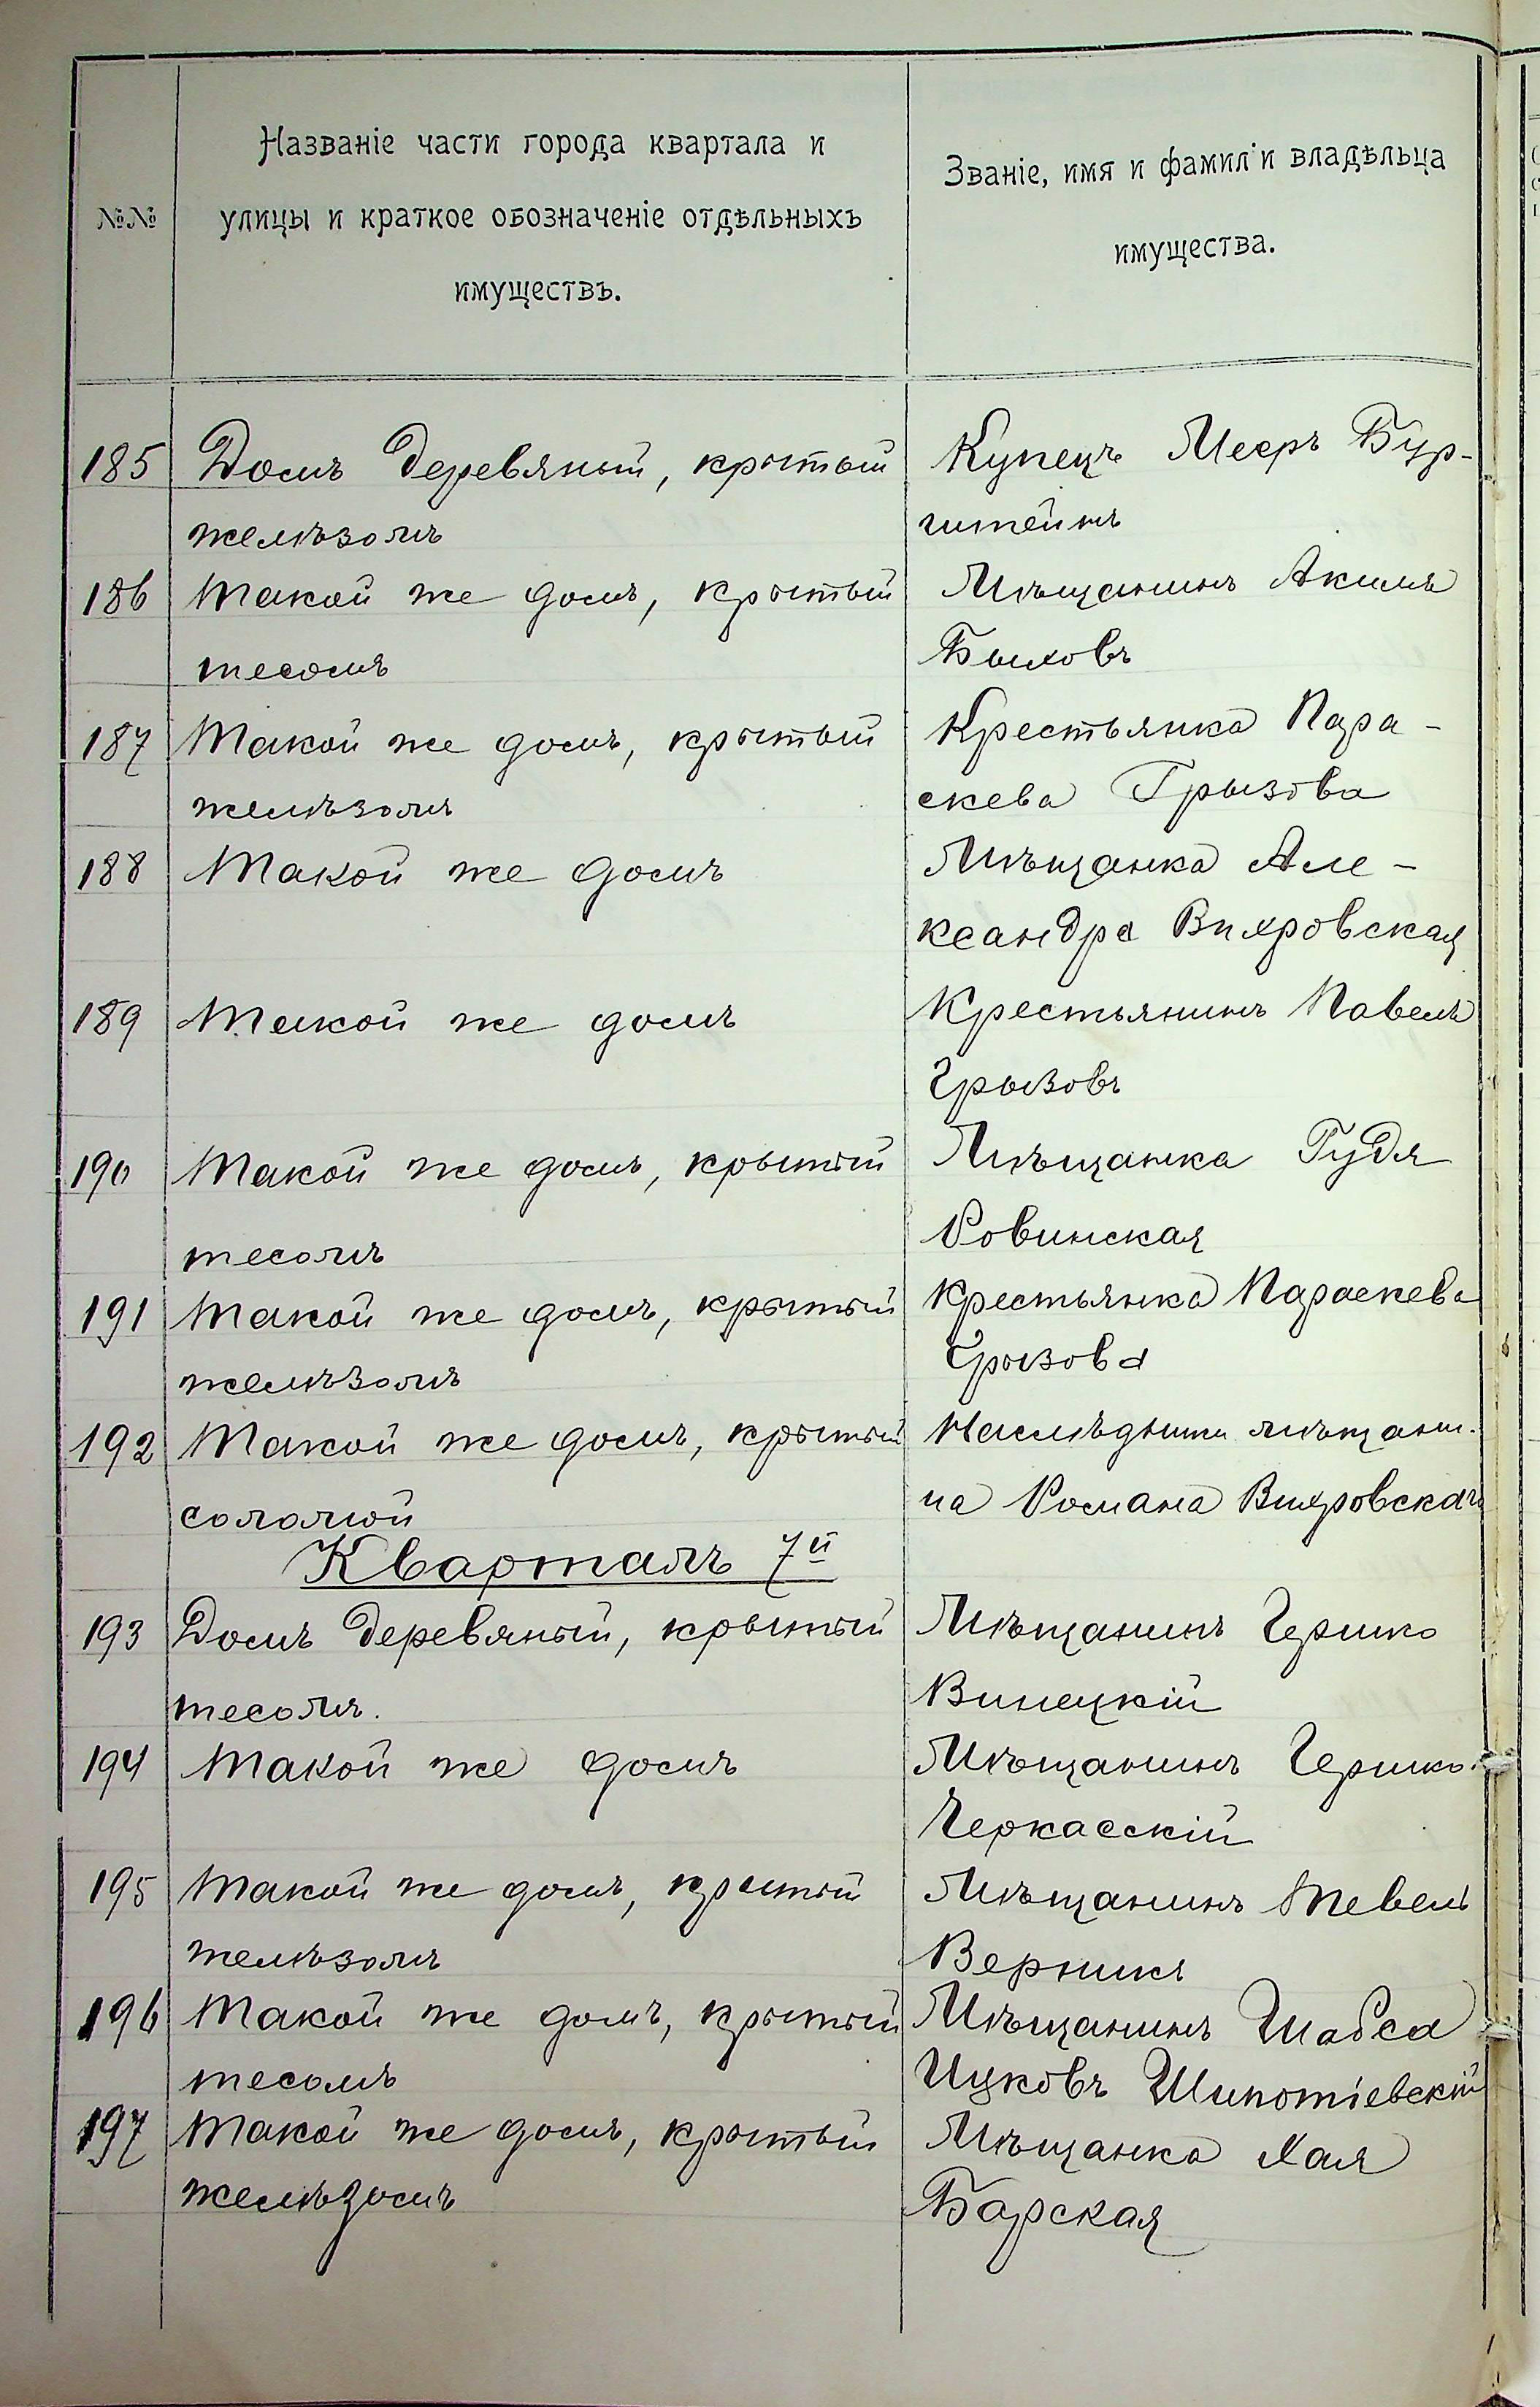 №№
Названіе части города квартала и
улицы и краткое обозначеніе отдѣльныхъ
имуществъ.
Званіе, имя и фамиліи владѣльца
имущества.
185 Домъ деревяный, крытый Купецъ Мееръ Бур-
желѣзомъ штейнъ
186 Такой же домъ, крытый Мѣщанинъ Акимъ
тесомъ Быховъ
187 Такой же домъ, крытый Крестьянка Пара-
желѣзомъ скева Грызова
188 Такой же домъ Мѣщанка Але-
ксандра Вихровская
189 Такой же домъ Крестьянинъ Павелъ
Грызовъ
190 Такой же домъ, крытый Мѣщанка Гудя
тесомъ Ровинская
191 Такой же домъ, крытый Крестьянка Параскева
желѣзомъ Грызова
192 Такой же домъ, крытый Наслѣдники мѣщани-
соломой на Романа Вихровскаго
Кварталъ 7й
193 Домъ деревяный, крытый Мѣщанинъ Гершко
тесомъ. Винецкій
194 Такой же домъ Мѣщанинъ Гершко
Черкасскій
195 Такой же домъ, крытый Мѣщанинъ Тевель
желѣзомъ Верникъ
196 Такой же домъ, крытый Мѣщанинъ Шабса
тесомъ Ицковъ Шипотіевскій
197 Такой же домъ, крытый Мѣщанка Хая
желѣзомъ Барская